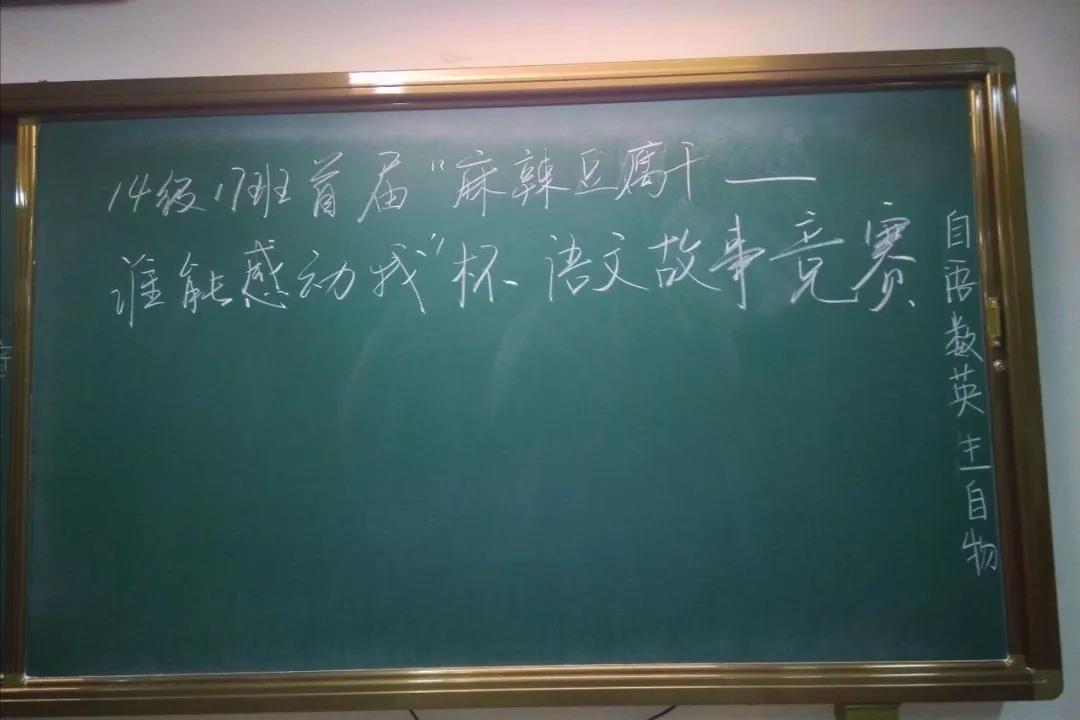 14级17班首届“麻辣豆腐干——
谁能感动我”杯语文故事竞赛
自语数英生自物